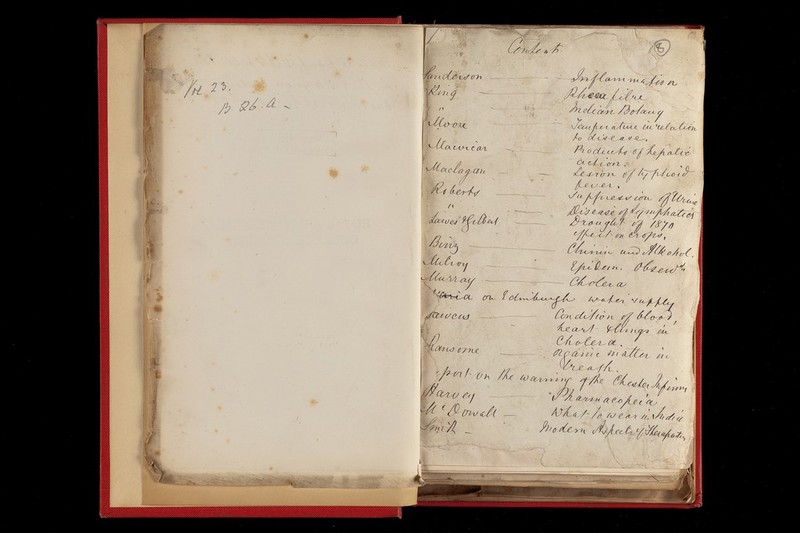 Vol 23.
B. 26. a.
Contents
8
Sanderson — Inflammation
King — Rheea fibre
" Indian Botany
Moore — Temperature in relation
to disease.
Macvicar — Products of hepatic
action
Maclagan — Lesion of typhoid
fever.
Roberts — Suppression of Urine
" Disease of Lymphatics
Lawes & Gilbert — Drought of 1870
effect on crops.
Binz — Chinin und Alkohol.
Milroy — Epidem. Obsern
Murray — Cholera
on Edinburgh water supply
Condition of blood,
heart & lungs in
Cholera.
Ransome — Organic matter in
breath.
port on the warming of the Chester Infirmy
Harvey — Pharmacopeia
McDowall — What to wear in India
Smith — Modern Aspects of Therapeutics